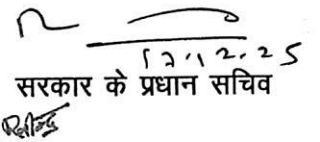 17.12.25
सरकार के प्रधान सचिव